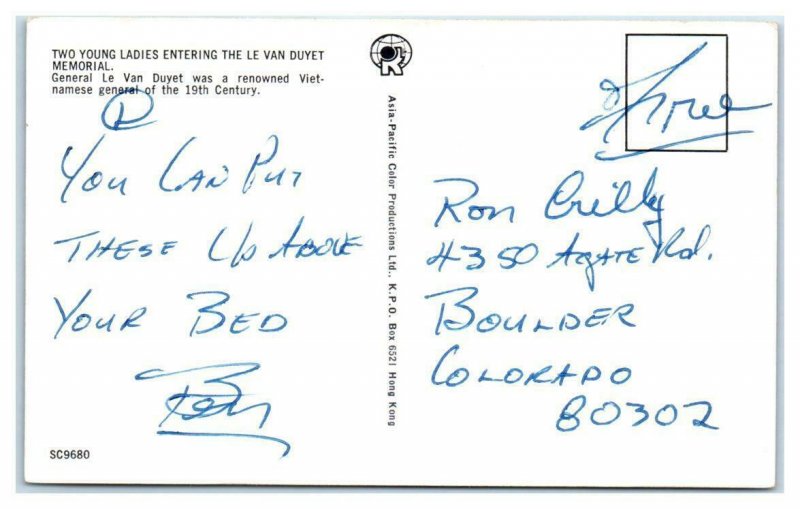 TWO YOUNG LADIES ENTERING THE LE VAN DUYET
MEMORIAL.
General Le Van Duyet was a renowned Viet-
namese general of the 19th Century.
YOU CAN PUT
THESE UP ABOVE
YOUR BED
Asia-Pacific Color Productions Ltd., K.P.O. Box 6521 Hong Kong
Free
Ron Crilly
4350 AGATE Rd.
BOULDER
COLORADO
80302
SC9680